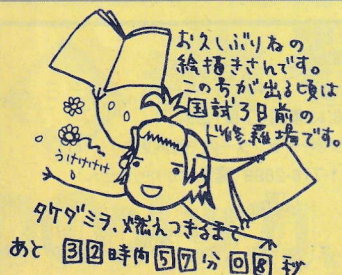 お久しぶりねの
絵描きさんです。
この号が出る頃は
国試3日前の
ド修羅場です。
うけけけけ
タケダミヲ、燃えつきるまで
あと 32時間57分08秒